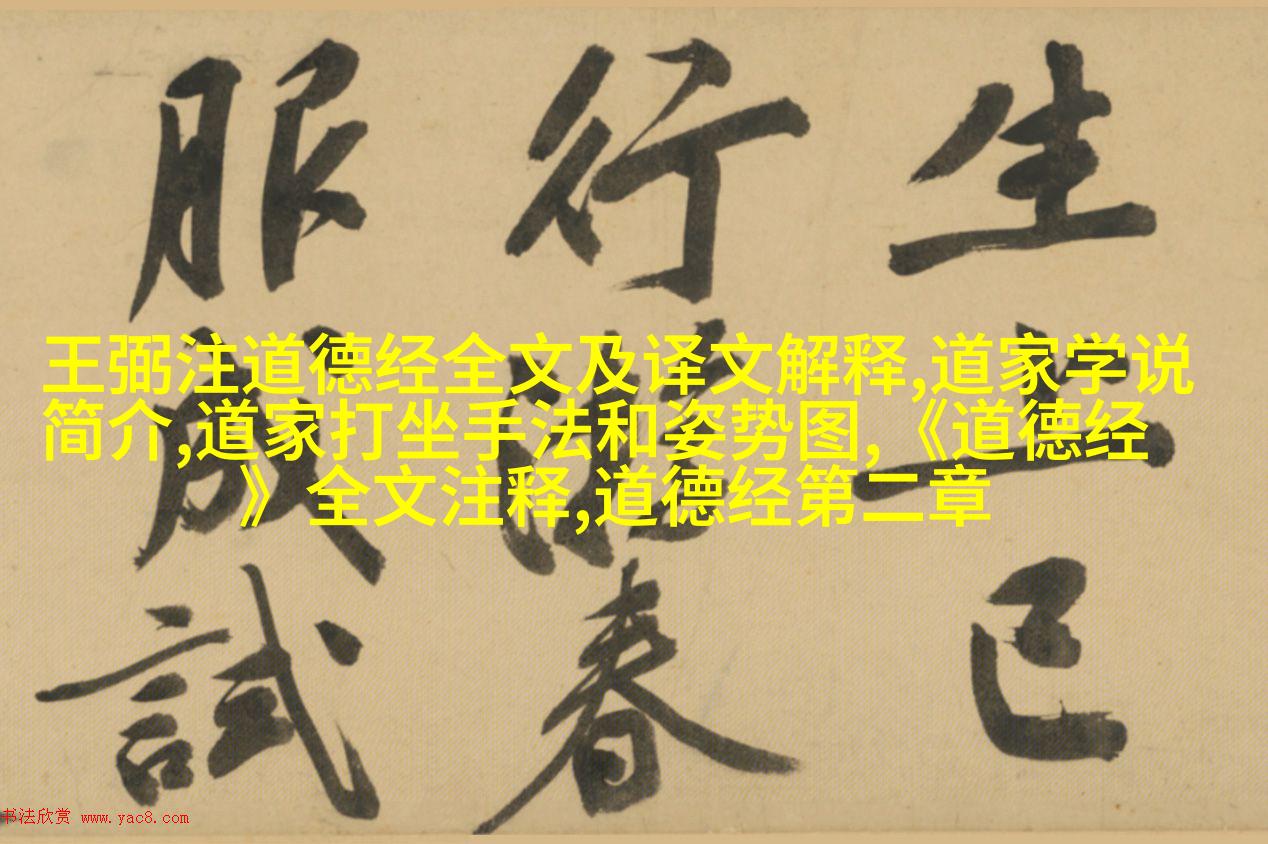 生上巳
行春
服成試
王弼注道德经全文及译文解释,道家学说
简介,道家打坐手法和姿势图,《道德经
》全文注释,道德经第二章
书法欣赏 www.yac8.com